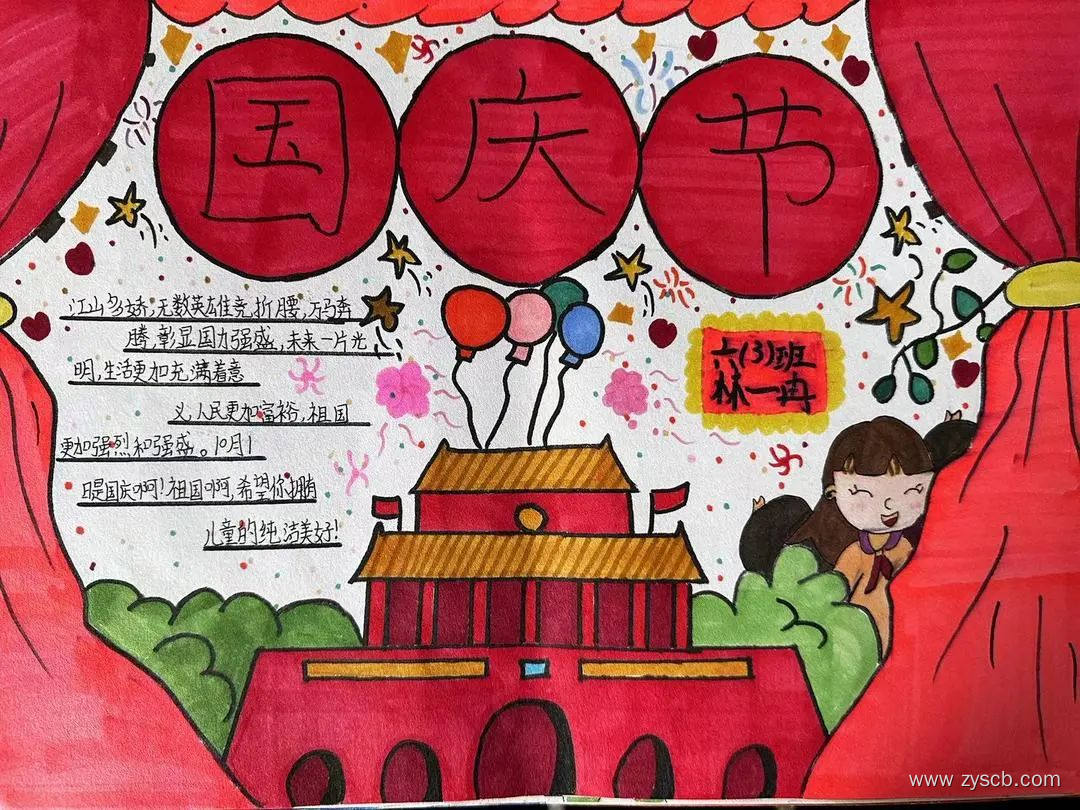 国庆节
江山多娇,无数英雄竞折腰,万马奔
腾,彰显国力强盛,未来一片光
明,生活更加充满着意
义,人民更加富裕,祖国
更加强烈和强盛。10月1
日是国庆啊!祖国啊,希望你拥有
儿童的纯洁美好!
六(3)班
林一冉
www.zyscb.com